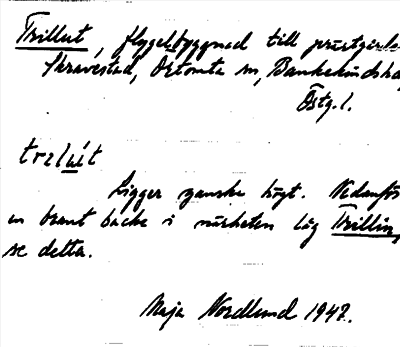 Trillut, flygelbyggnad till prästgården
Skravestad, Örtomta sn, Bankekinds hd
Östg. l.
trɛlút
Ligger ganska högt. Nedanför
en brant backe i närheten låg Trillin,
se detta.
Maja Nordlund 1947.